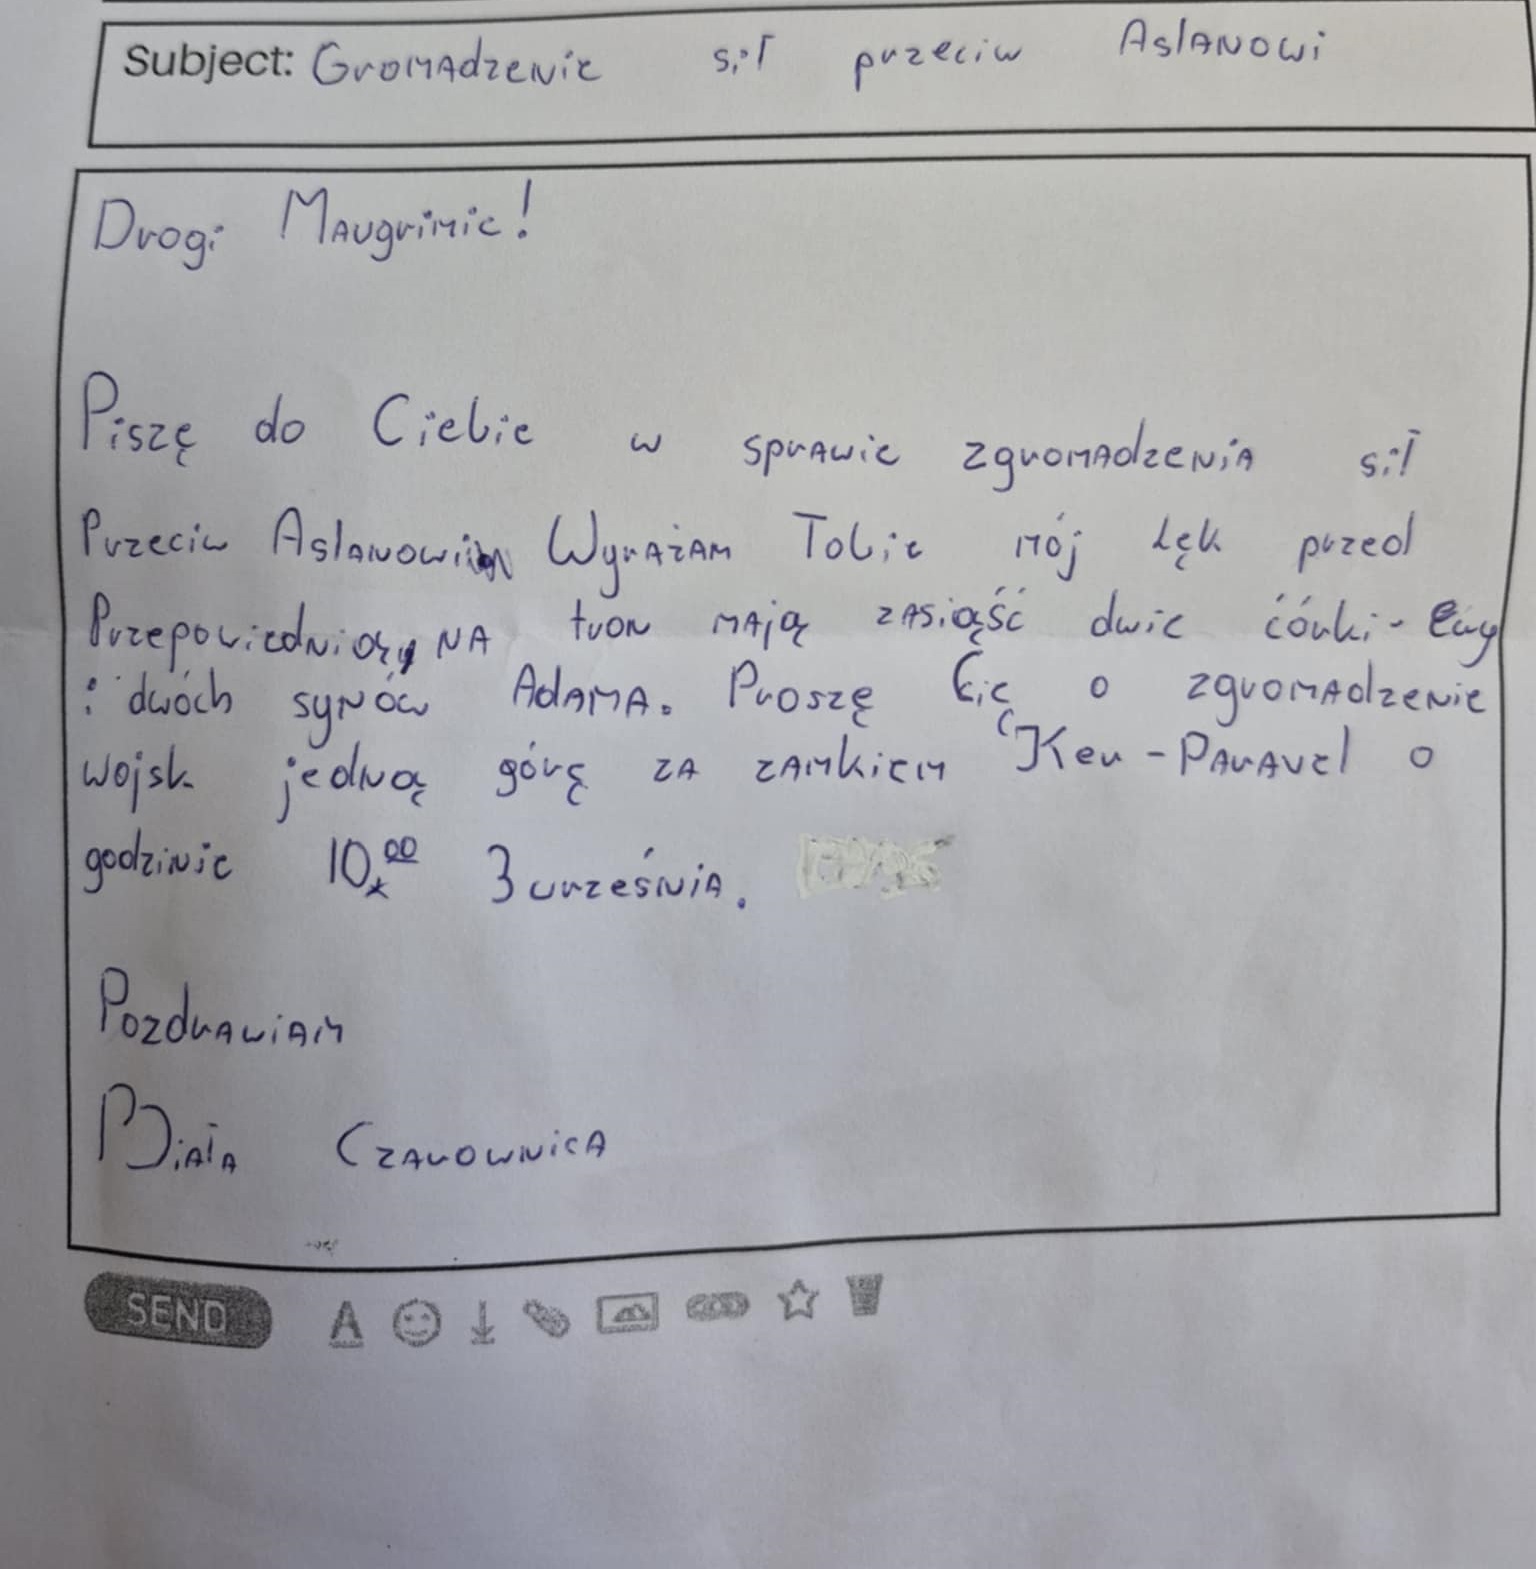 Subject: Gromadzenie sił przeciw Aslanowi
Drogi Maugrimie!
Piszę do Ciebie w sprawie zgromadzenia sił
Przeciw Aslanowi Wyrażam Tobie mój lęk przed
Przepowiednią, NA tron mają zasiąść dwie córki - Ewy
i dwóch synów Adama. Proszę Cię o zgromadzenie
wojsk jedną górę za zamkiem Ker - Paravel o
godzinie 10.00 3 września.
Pozdrawiam
Biała Czarownica
SEND